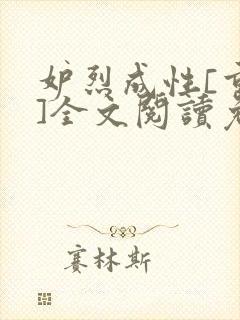 妒烈成性[
]全文閱讀
賽林斯